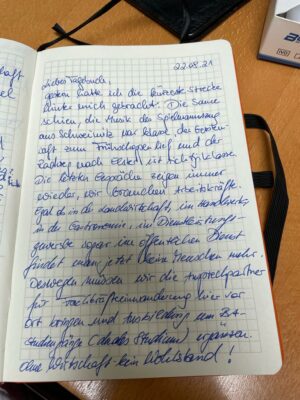 22.08.21
Liebes Tagebuch,
gestern hatte ich die kürzeste Strecke
hinter mich gebracht. Die Sonne
schien, die Musik des Spielmannszug
aus Schweinitz war klasse, der
zum Frühschoppen lief und der
Radweg nach Elster ist richtig klasse.
Die letzten Gespräche zeigen immer
wieder, wir brauchen Arbeitskräfte.
Egal ob in der Landwirtschaft, im Handwerk,
in der Gastronomie, im Dienstleistungs-
gewerbe sogar im öffentlichen Dienst
findet man jetzt keine Menschen mehr.
Deswegen müssen wir die Ansprechpartner
für Fachkräfteeinwanderung hier vor
Ort bringen und Ausbildung um BA-
Studiengänge (duales Studium) ergänzen.
ohne Wirtschaft kein Wohlstand!